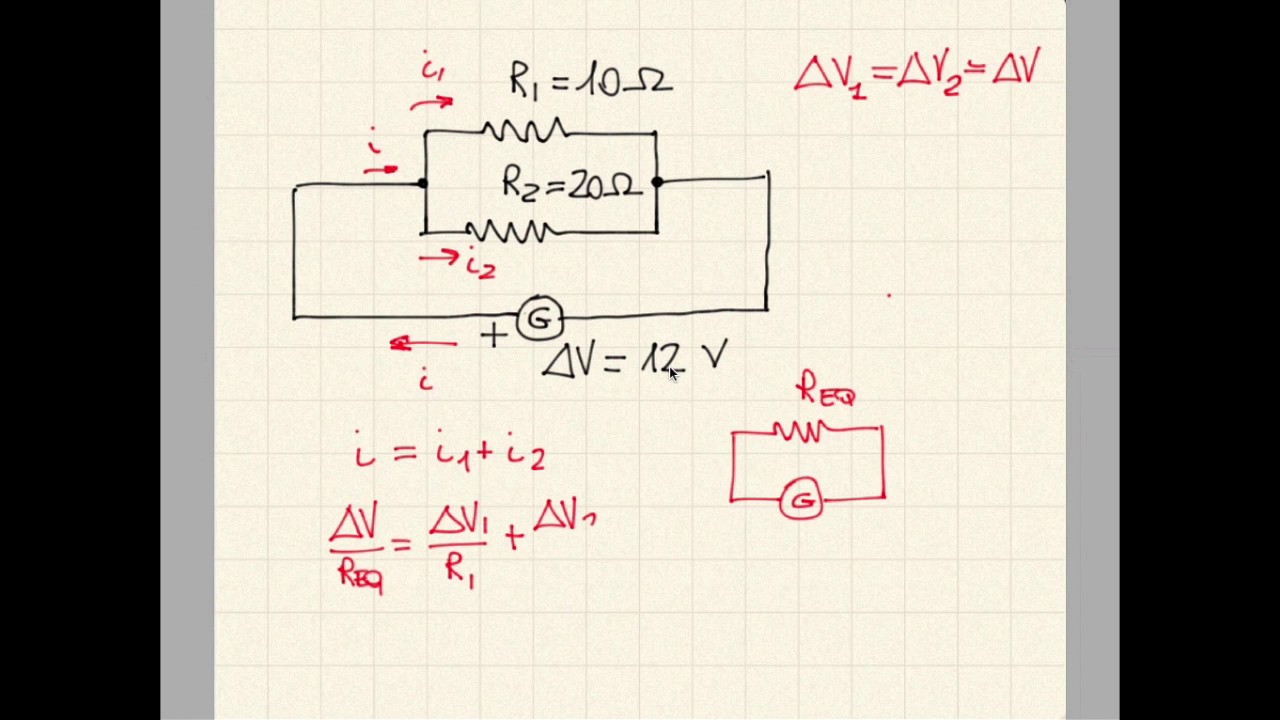 i₁
R₁ = 10 Ω
ΔV₁ = ΔV₂ = ΔV
i
R₂ = 20 Ω
i₂
G
+
ΔV = 12 V
i
R_EQ
G
i = i₁ + i₂
ΔV/R_EQ = ΔV₁/R₁ + ΔV₂